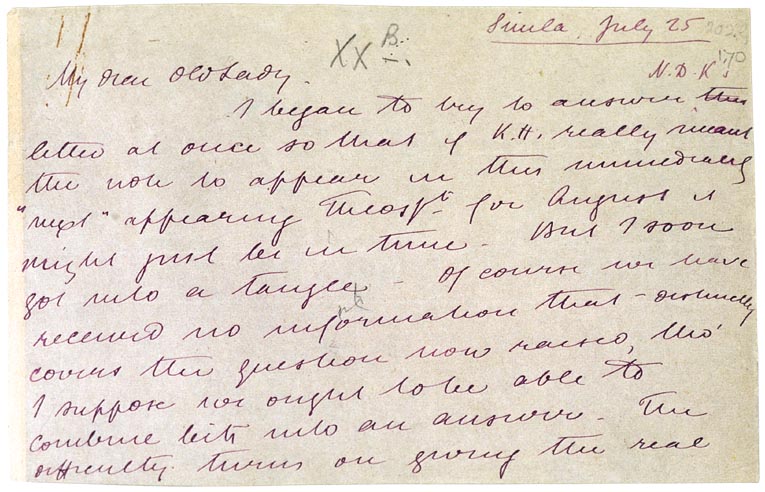 Simla, July 25
XX B.
170
My dear Old Lady.
N. D. K's
I began to try to answer this
letter at once so that if K.H. really meant
the note to appear in this immediately
"next" appearing Theost. for August it
might just be in time. But I soon
got into a tangle - Of course we have
received no information that distinctly
covers the question now raised, tho'
I suppose we ought to be able to
combine bits into an answer. The
difficulty turns on giving the real